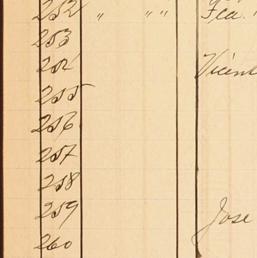 252 " " " Fla. "
253
252 Vicent
255
256
257
258
259 Jose
260